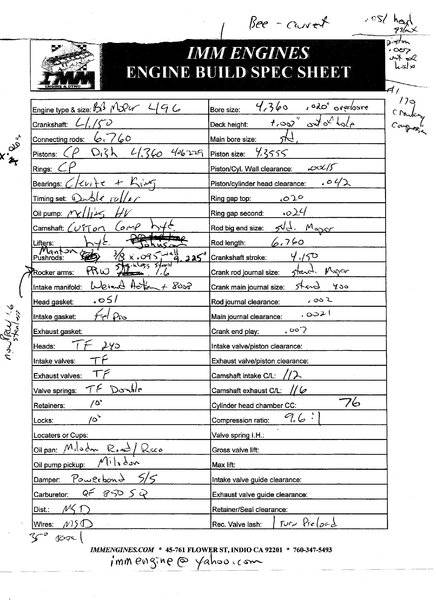 Bee - cuvet
.051 head gasket
.007 out of hole
179 Cranking Compression
IMM ENGINES
ENGINE BUILD SPEC SHEET
IMM
Engine type & size: BB Mopar 496
Bore size: 4.360 .020" overbore
Crankshaft: 4.150
Deck height: +.007" out of hole
Connecting rods: 6.760
Main bore size: std.
Pistons: CP Dish 4.360
Piston size: 4.3555
Rings: CP
Piston/Cyl. Wall clearance: .0045
Bearings: Clevite + King
Piston/cylinder head clearance: .042
Timing set: Double roller
Ring gap top: .020
Oil pump: Melling HV
Ring gap second: .024
Camshaft: Custom Comp hyt
Rod big end size: std. Mopar
Lifters: hyt Johnson
Rod length: 6.760
Manton
Pushrods: 3/8 x .095 wall 9.225"
Camshaft stroke: 4.150
Rocker arms: PRW 1.6
Crank rod journal size: stand. Mopar
Intake manifold: 8008
Crank main journal size: stand 400
Head gasket: .051
Rod journal clearance: .002
Intake gasket: Fel Pro
Main journal clearance: .0021
Exhaust gasket:
Crank end play: .007
Heads: TF 240
Intake valve/piston clearance:
Intake valves: TF
Exhaust valve/piston clearance:
Exhaust valves: TF
Camshaft intake C/L: 112
Valve springs: TF Double
Camshaft exhaust C/L: 116
Retainers: 10°
Cylinder head chamber CC: 76
Locks: 10°
Compression ratio: 9.6:1
Locators or Cups:
Valve spring I.H.:
Oil pan: Milodon Road/Race
Gross valve lift:
Oil pump pickup: Milodon
Max lift:
Damper: Powerbond S/S
Intake valve guide clearance:
Carburetor: QF 850 SQ
Exhaust valve guide clearance:
Dist.: MSD
Retainer/Seal clearance:
Wires: MSD
Rec. Valve lash: 1 turn Preload
35° total
IMMENGINES.COM * 45-761 FLOWER ST, INDIO CA 92201 * 760-347-5493
immengine@yahoo.com